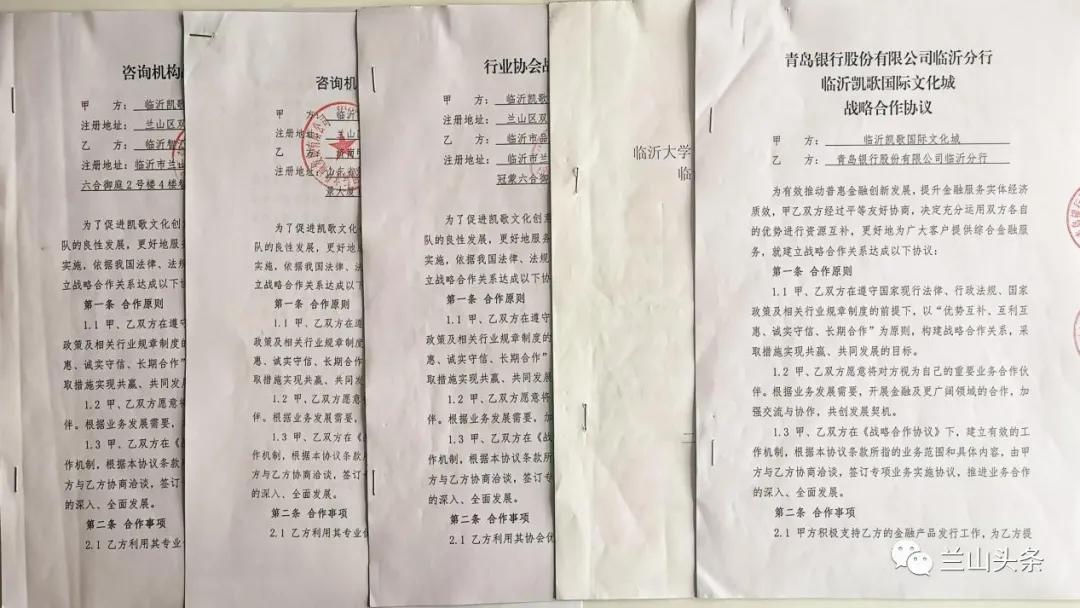 咨询机构
甲 方：临沂凯歌
注册地址：兰山区双
乙 方：临沂
注册地址：临沂市兰山
六合御庭2号楼4楼
为了促进凯歌文化创意
队的良性发展，更好地服务
实施，依据我国法律、法规
立战略合作关系达成以下协
第一条 合作原则
1.1 甲、乙双方在遵守
政策及相关行业规章制度的
惠、诚实守信、长期合作”
取措施实现共赢、共同发展
1.2 甲、乙双方愿意将
伴。根据业务发展需要，
强交流与协作，共创发展契
1.3 甲、乙双方在《战
作机制，根据本协议条款所
方与乙方协商洽谈，签订
的深入、全面发展。
第二条 合作事项
2.1 乙方利用其专业
咨询机
甲 方：临沂
注册地址：兰山
乙
注册地址：
景大厦
为了促进凯歌文化
队的良性发展，更好地
实施，依据我国法律、
立战略合作关系达成以
第一条 合作原则
1.1 甲、乙双方在
政策及相关行业规章制
惠、诚实守信、长期合
取措施实现共赢、共同
1.2 甲、乙双方愿
伴。根据业务发展需要
强交流与协作，共创发
1.3 甲、乙双方在
作机制，根据本协议条
方与乙方协商洽谈，签
的深入、全面发展。
第二条 合作事项
2.1 乙方利用其专
行业协会战
甲 方：临沂凯歌
注册地址：兰山区双
乙 方：临沂市品
注册地址：临沂市兰
冠蒙六合御
为了促进凯歌文化创
队的良性发展，更好地服
实施，依据我国法律、法
立战略合作关系达成以下
第一条 合作原则
1.1 甲、乙双方在遵
政策及相关行业规章制度
惠、诚实守信、长期合作
取措施实现共赢、共同发
1.2 甲、乙双方愿意
伴。根据业务发展需要，加
强交流与协作，共创发展
1.3 甲、乙双方在《战
作机制，根据本协议条款
方与乙方协商洽谈，签订专
的深入、全面发展。
第二条 合作事项
2.1 乙方利用其协会优
临沂大学
临
二
青岛银行股份有限公司临沂分行
临沂凯歌国际文化城
战略合作协议
甲 方：临沂凯歌国际文化城
乙 方：青岛银行股份有限公司临沂分行
为有效推动普惠金融创新发展，提升金融服务实体经济
质效，甲乙双方经过平等友好协商，决定充分运用双方各自
的优势进行资源互补，更好地为广大客户提供综合金融服
务，就建立战略合作关系达成以下协议：
第一条 合作原则
1.1 甲、乙双方在遵守国家现行法律、行政法规、国家
政策及相关行业规章制度的前提下，以“优势互补、互利互
惠、诚实守信、长期合作”为原则，构建战略合作关系，采
取措施实现共赢、共同发展的目标。
1.2 甲、乙双方愿意将对方视为自己的重要业务合作伙
伴。根据业务发展需要，开展金融及更广阔领域的合作，加
强交流与协作，共创发展契机。
1.3 甲、乙双方在《战略合作协议》下，建立有效的工
作机制，根据本协议条款所指的业务范围和具体内容，由甲
方与乙方协商洽谈，签订专项业务实施协议，推进业务合作
的深入、全面发展。
第二条 合作事项
2.1 甲方积极支持乙方的金融产品发行工作，为乙方提
兰山头条